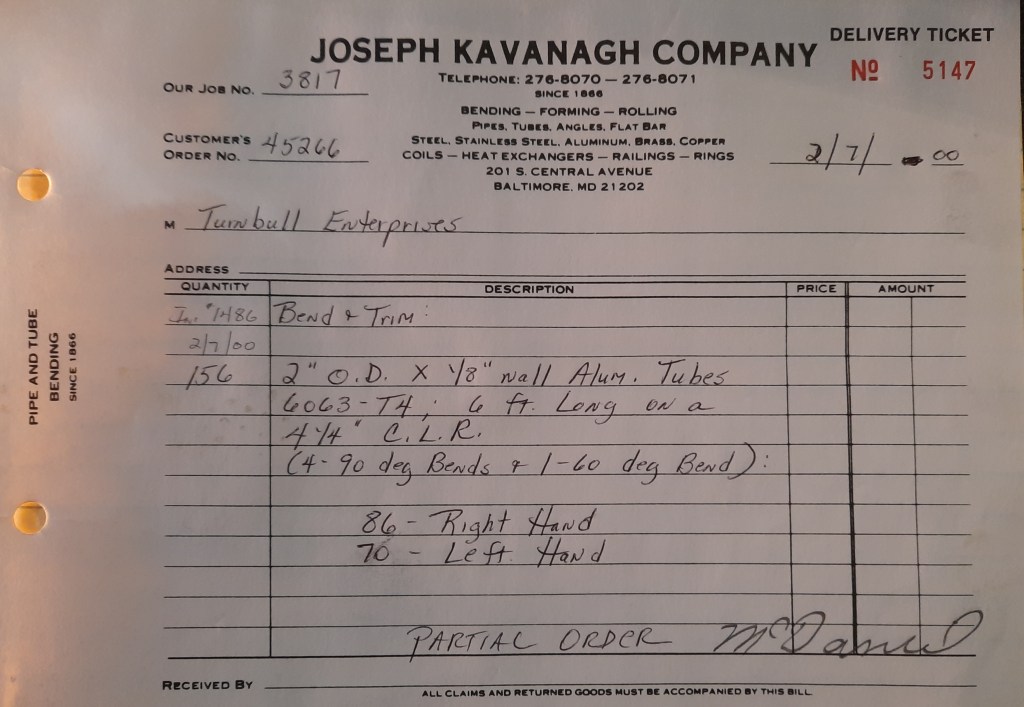 DELIVERY TICKET
JOSEPH KAVANAGH COMPANY
Nº 5147
TELEPHONE: 276-8070 — 276-8071
SINCE 1866
OUR JOB NO. 3817
BENDING — FORMING — ROLLING
PIPES, TUBES, ANGLES, FLAT BAR
CUSTOMER'S ORDER NO. 45266
STEEL, STAINLESS STEEL, ALUMINUM, BRASS, COPPER
COILS — HEAT EXCHANGERS — RAILINGS — RINGS
2/7/ 00
201 S. CENTRAL AVENUE
BALTIMORE, MD 21202
M Turnbull Enterprises
ADDRESS
QUANTITY DESCRIPTION PRICE AMOUNT
Inv. #1486 Bend & Trim:
2/7/00
156 2" O.D. X 1/8" wall Alum. Tubes
6063-T4; 6 ft. Long on a
4 1/4" C.L.R.
(4-90 deg Bends & 1-60 deg Bend):
86 - Right Hand
70 - Left Hand
PARTIAL ORDER McDaniel
RECEIVED BY
ALL CLAIMS AND RETURNED GOODS MUST BE ACCOMPANIED BY THIS BILL.
PIPE AND TUBE
BENDING
SINCE 1866